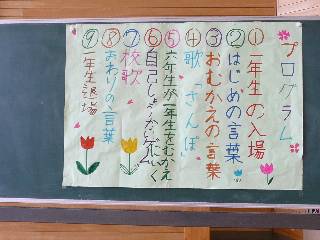 プログラム
①一年生の入場
②はじめの言葉
③おむかえの言葉
④歌「さんぽ」
⑤六年生が一年生をむかえにいく
⑥自己しょうかい
⑦校歌
⑧おわりの言葉
⑨一年生退場